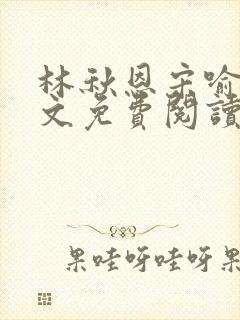 林秋恩宋喻
文免費閱讀
果哇呀哇呀果